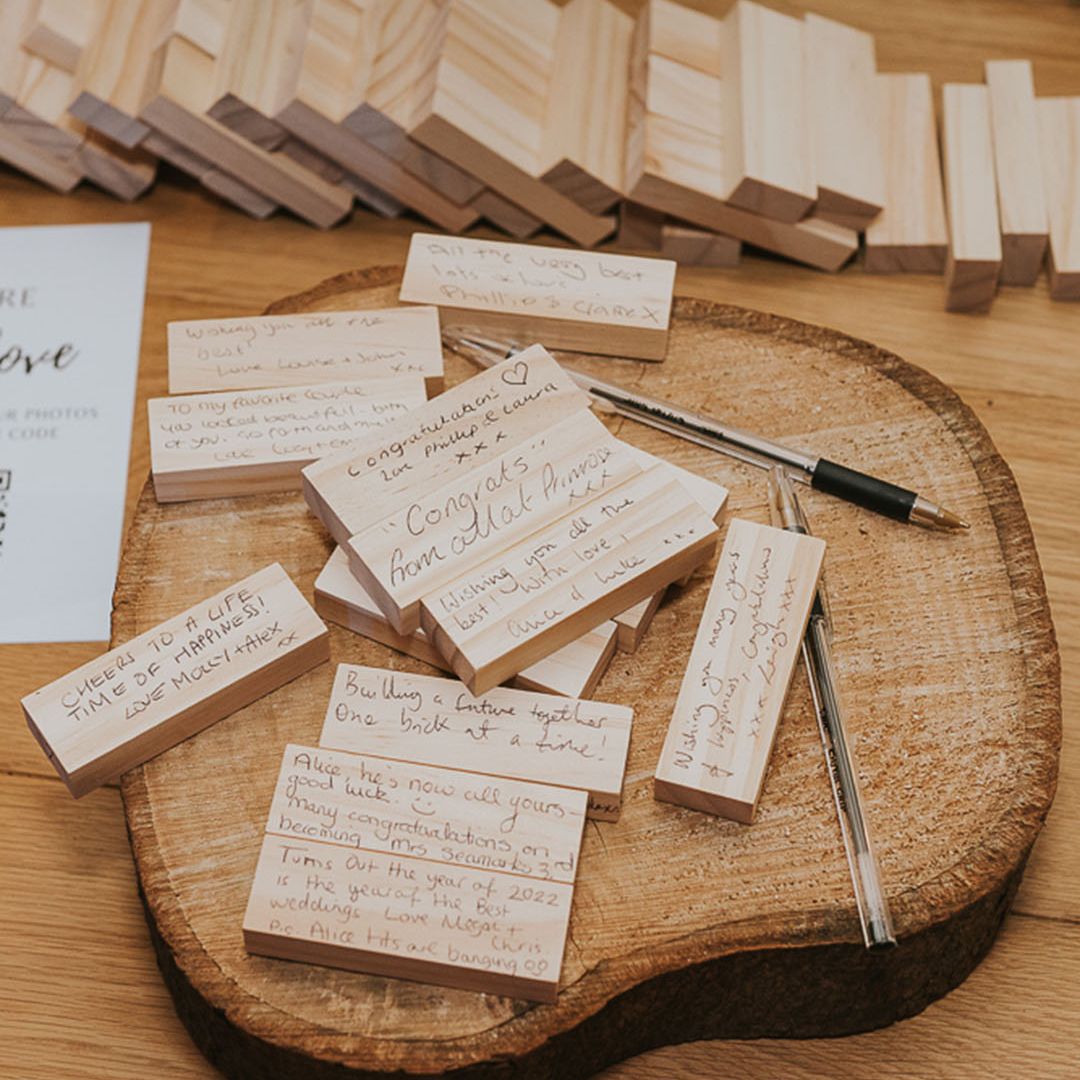 RE
ove
R PHOTOS
CODE
All the very best
lots of love
Phillip & Claire X
Wishing you all the
best
Love Louise + John
xxx
To my favorite couple
you looked beautiful - both
of you. So
Love
Congratulations ♡
Love Phillip & Laura
xxx
"Congrats"
from all at Primrose
xxx
Wishing you all the
best! With love,
ana & luke x x x
CHEERS TO A LIFE
TIME OF HAPPINESS!
LOVE MOLLY + Alex
xx
Building a future together
One brick at a time!
Wishing you many years
of happiness, congratulations
xxx Leigh xxx
Alice, he's now all yours -
good luck. ☺
Many congratulations on
becoming Mrs Seamarks 3rd
Turns Out the year of 2022
is the year of the Best
weddings Love Megat +
Chris
P.S. Alice tits are banging